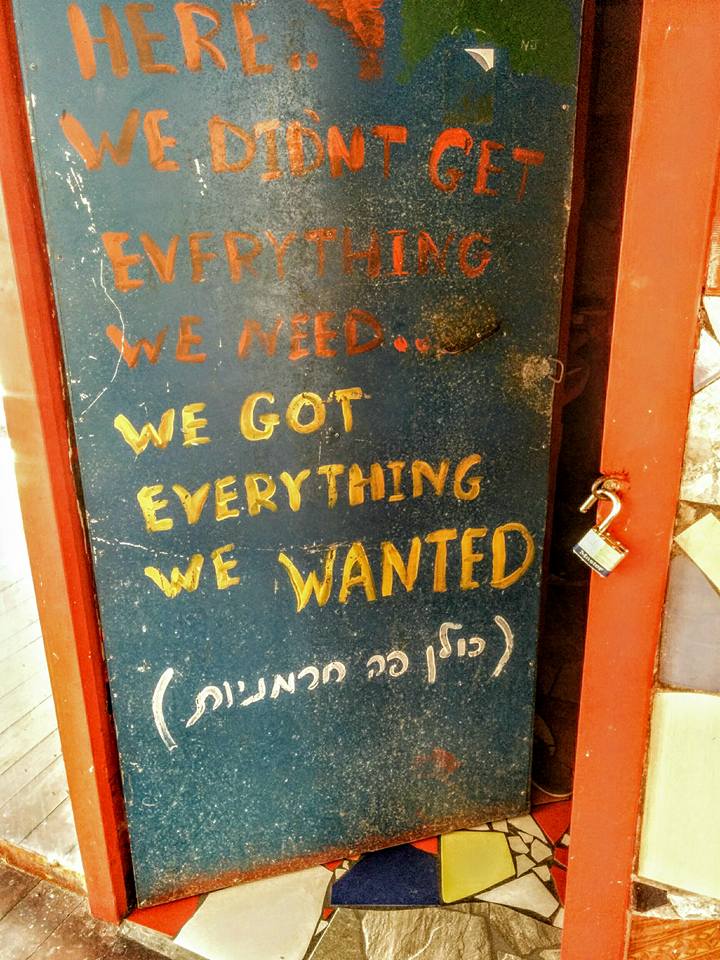 HERE..
NJ
WE DIDNT GET
EVERYTHING
WE NEED..
WE GOT
EVERYTHING
WE WANTED
(כולן פה חרמניות)
Master